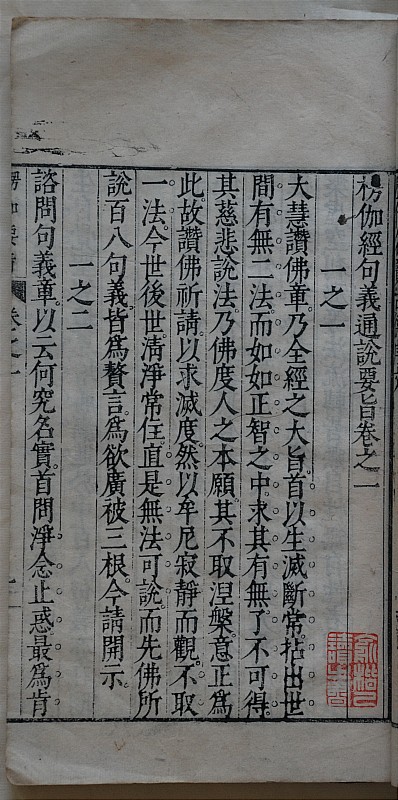 楞伽經句義通說要旨卷之一
一之一
大慧讚佛章乃全經之大旨首以生滅斷常拈出世
間有無二法而如如正智之中求其有無了不可得
其慈悲說法乃佛度人之本願其不取涅槃意正為
此故讚佛祈請以求滅度然以牟尼寂靜而觀不取
一法今世後世淸淨常住直是無法可說而先佛所
說百八句義皆為贅言為欲廣被三根今請開示
一之二
諮問句義章以云何究名實首問淨念止惑最為肯
楞伽要旨 卷之一